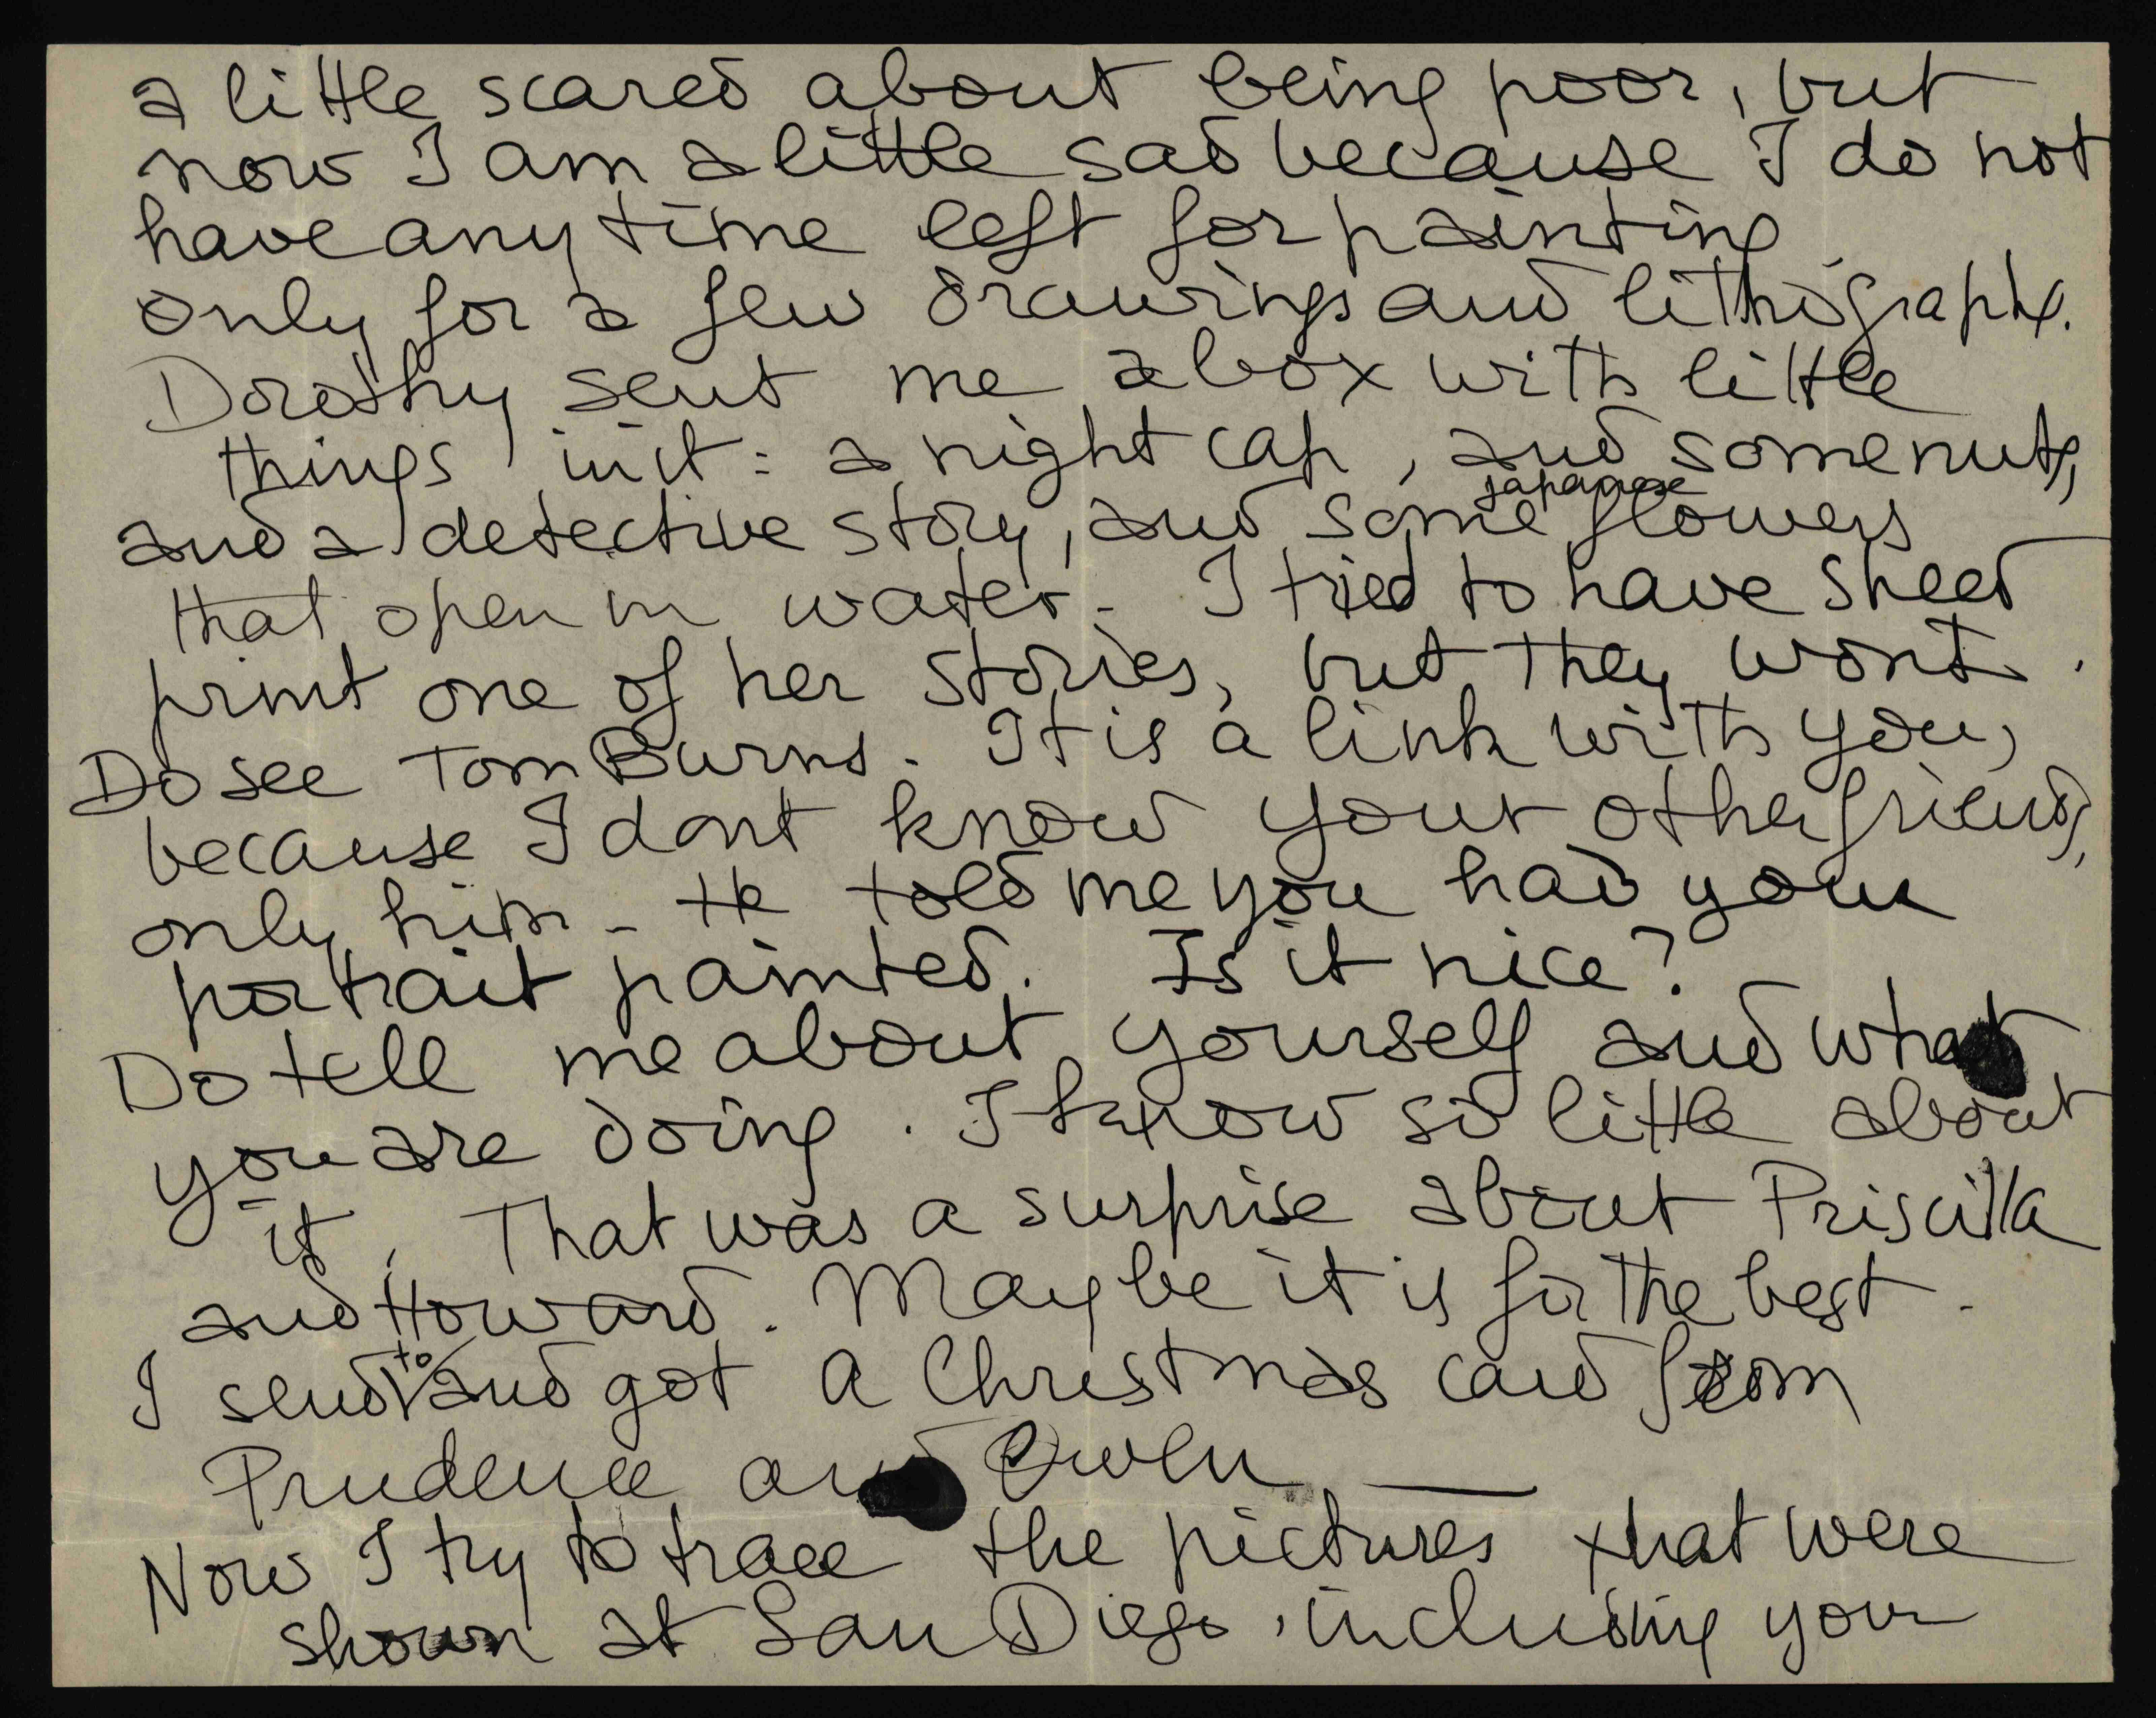 a little scared about being poor, but
now I am a little sad because I do not
have any time left for painting
only for a few drawings and lithographs.
Dorothy sent me a box with little
things in it: a night cap, and some nuts,
and a detective story, and some japanese flowers
that open in water. I tried to have Sheed
print one of her stories, but they wont.
Do see Tom Burns. It is a link with you,
because I dont know your other friends,
only him - He told me you had your
portrait painted. Is it nice?
Do tell me about yourself and what
you are doing. I know so little about
it. That was a surprise about Priscilla
and Howard. Maybe it is for the best.
I send to and got a Christmas card from
Prudence and Owen —
Now I try to trace the pictures that were
shown at San Diego, including your